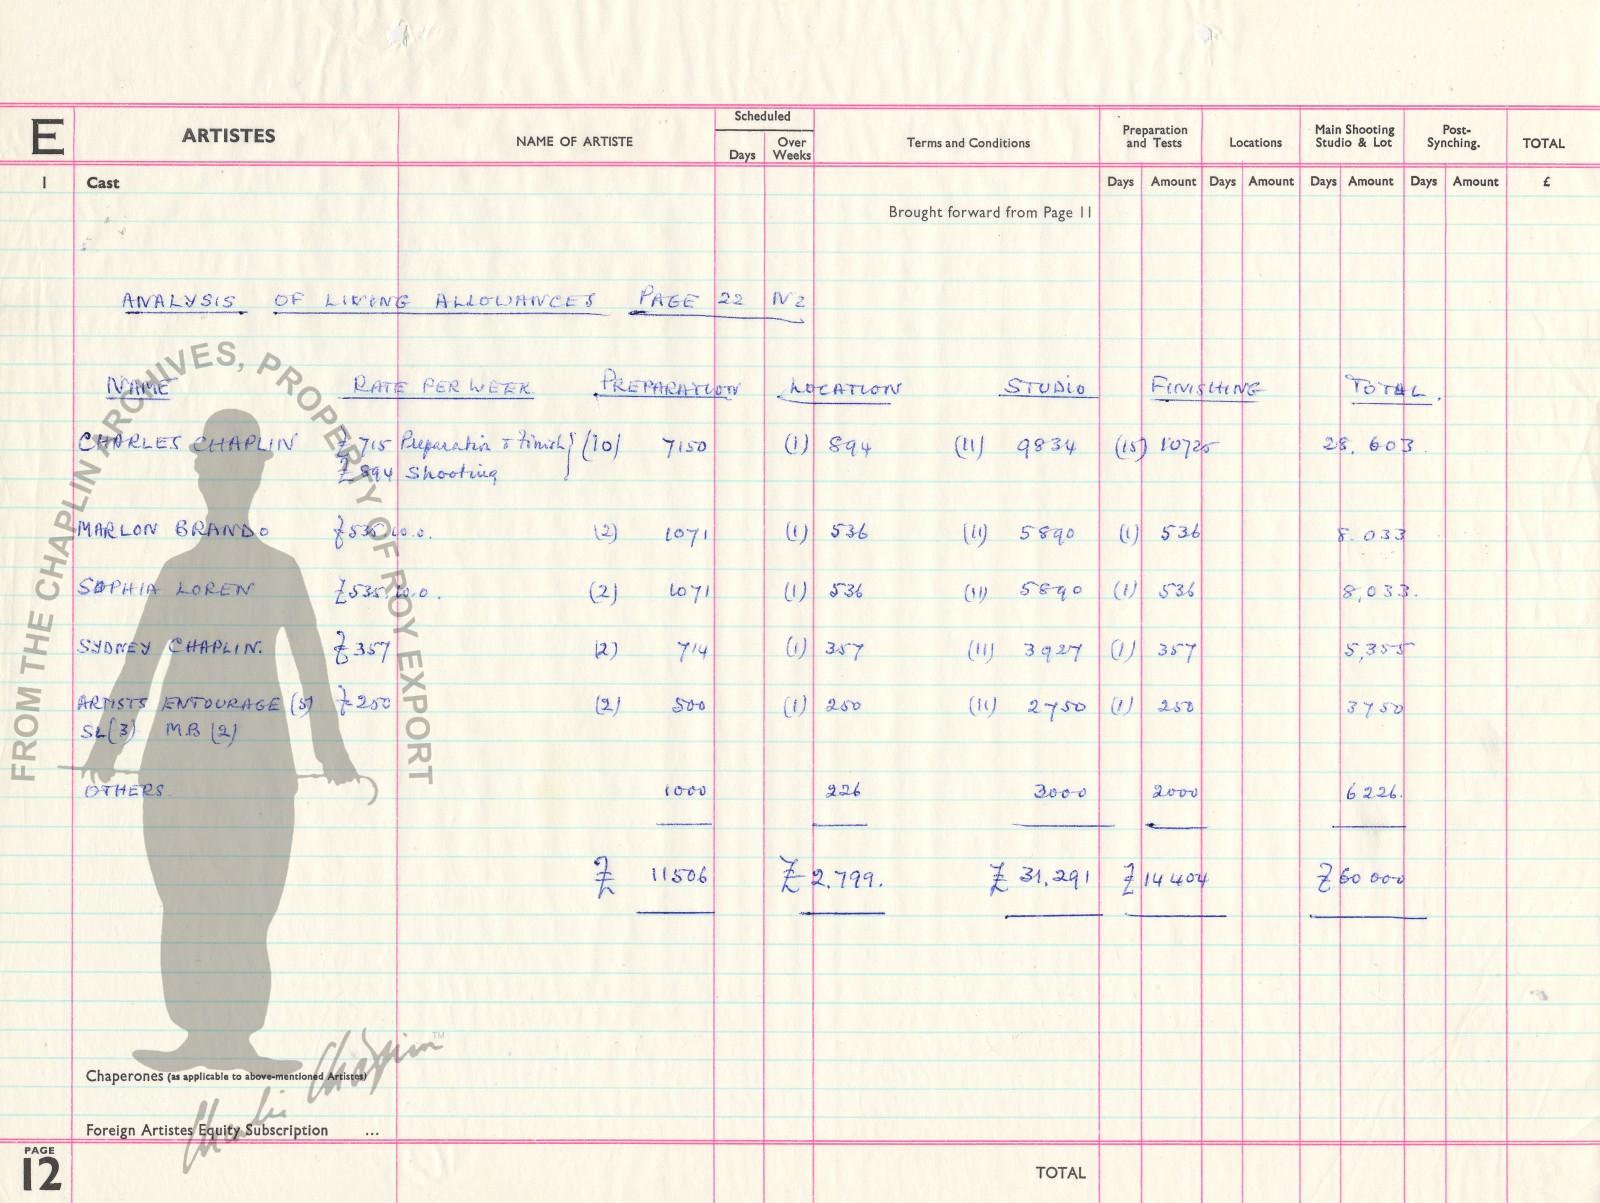 E ARTISTES NAME OF ARTISTE Scheduled Days Over Weeks Terms and Conditions Preparation and Tests Locations Main Shooting Studio & Lot Post-Synching. TOTAL
1 Cast Days Amount Days Amount Days Amount Days Amount £
Brought forward from Page 11
ANALYSIS OF LIVING ALLOWANCES PAGE 22 N2
NAME RATE PER WEEK PREPARATION LOCATION STUDIO FINISHING TOTAL.
CHARLES CHAPLIN £715 Preparation & Finish} (10) 7150 (1) 894 (11) 9834 (15) 10725 28,603.
£894 Shooting
MARLON BRANDO £535.10.0. (2) 1071 (1) 536 (11) 5890 (1) 536 8.033
SOPHIA LOREN £535.10.0. (2) 1071 (1) 536 (11) 5890 (1) 536 8,033.
SYDNEY CHAPLIN. £357 (2) 714 (1) 357 (11) 3927 (1) 357 5,355
ARTISTS ENTOURAGE (5) £250 (2) 500 (1) 250 (11) 2750 (1) 250 3750
SL(3) M.B (2)
OTHERS. 1000 226 3000 2000 6226.
£ 11506 £2.799. £31,291 £14404 £60000
Chaperones (as applicable to above-mentioned Artistes)
Foreign Artistes Equity Subscription ...
PAGE
12 TOTAL
FROM THE CHAPLIN ARCHIVES, PROPERTY OF ROY EXPORT
Charlie Chaplin™